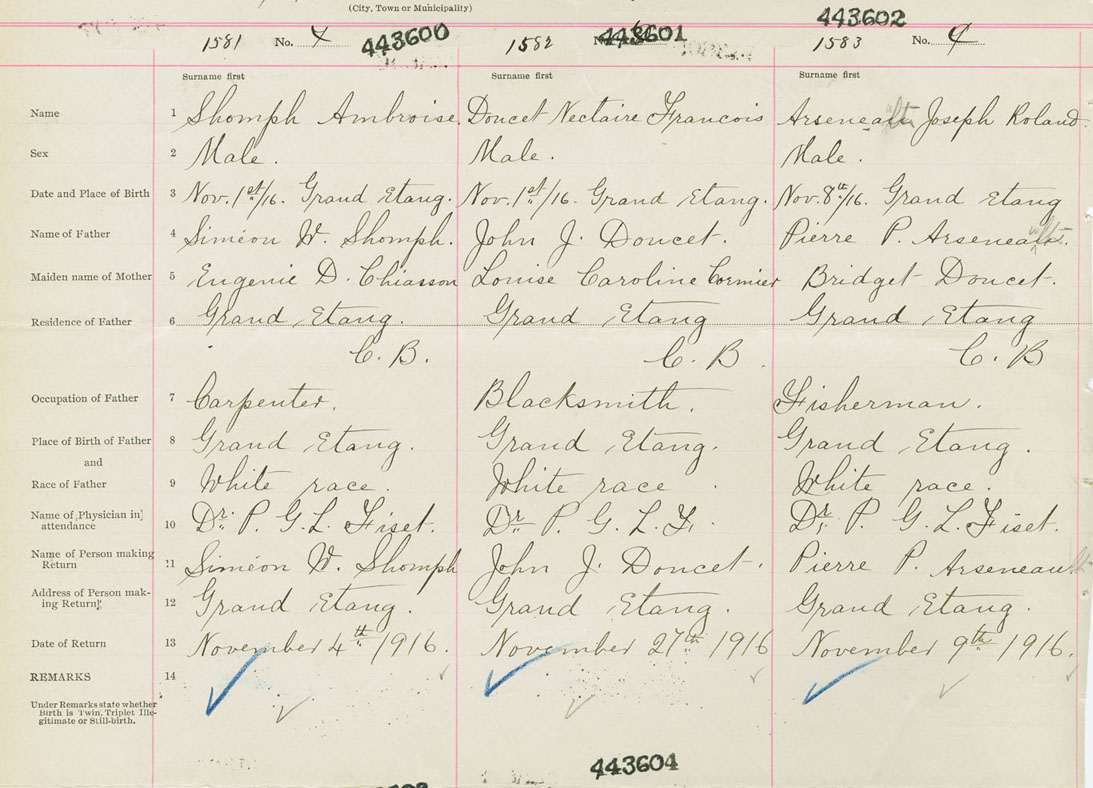 (City, Town or Municipality)
443602
1581 No. 4 443600 1582 No. 443601 1583 No. 9
Surname first Surname first Surname first
Name 1 Shomph Ambroise. Doucet Nectaire Francois Arseneault Joseph Roland.
Sex 2 Male. Male. Male.
Date and Place of Birth 3 Nov. 1st/16. Grand Etang. Nov. 1st/16. Grand Etang. Nov. 8th/16. Grand Etang
Name of Father 4 Siméon W. Shomph. John J. Doucet. Pierre P. Arseneault.
Maiden name of Mother 5 Eugenie D. Chiasson Louise Caroline Cormier Bridget Doucet.
Residence of Father 6 Grand Etang. Grand Etang Grand Etang
C. B. C. B. C. B
Occupation of Father 7 Carpenter. Blacksmith. Fisherman.
Place of Birth of Father 8 Grand Etang. Grand Etang. Grand Etang.
and
Race of Father 9 White race. White race. White race.
Name of [Physician in]
attendance 10 Dr. P. G. L. Fiset. Dr. P. G. L. F. Dr. P. G. L. Fiset.
Name of Person making
Return 11 Siméon W. Shomph John J. Doucet. Pierre P. Arseneault
Address of Person mak-
ing Return] 12 Grand Etang. Grand Etang. Grand Etang.
Date of Return 13 November 4th 1916. November 27th 1916 November 9th 1916.
REMARKS 14
Under Remarks state whether
Birth is Twin, Triplet Ille-
gitimate or Still-birth.
443604